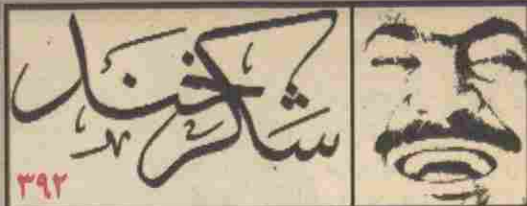 شکرخند
۳۹۲